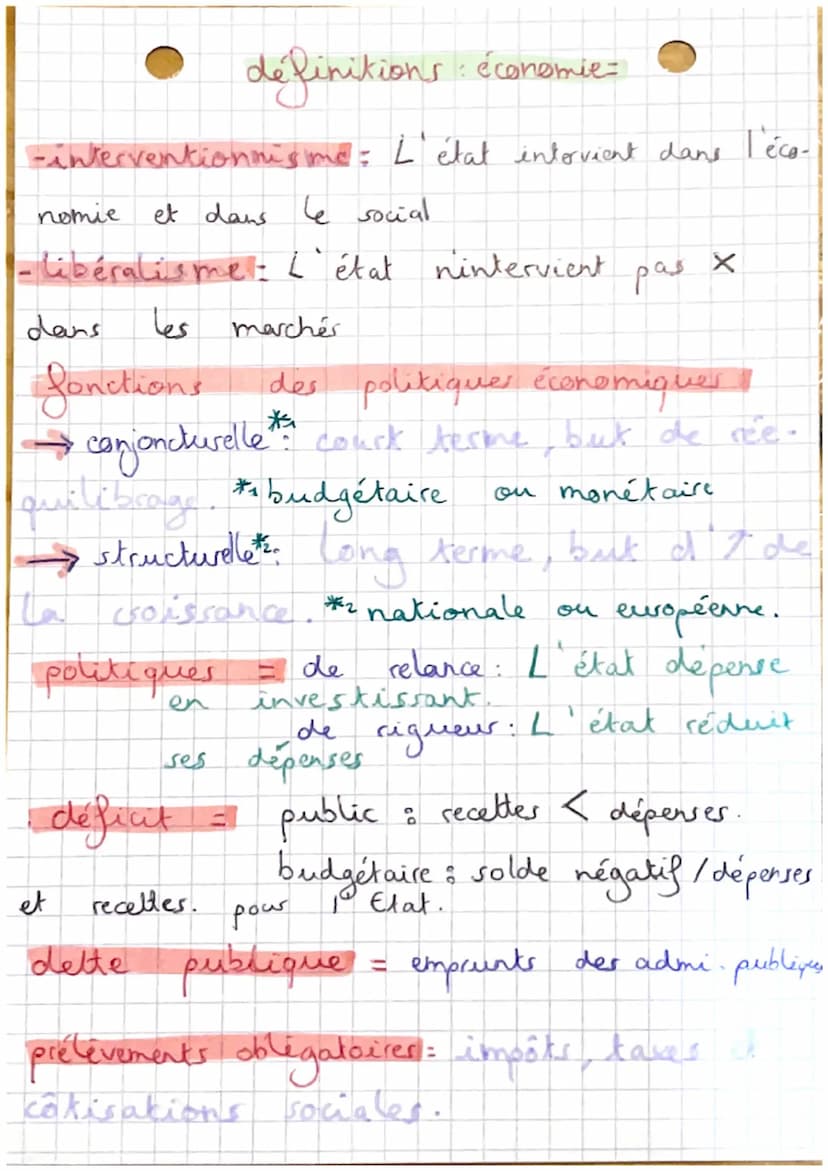 définitions : économie=
-interventionnisme = L'état intervient dans l'éco-
nomie et dans le social
-libéralisme = L'état n'intervient pas X
dans les marchés
fonctions des politiques économiques
→ conjoncturelle*1 : court terme, but de rée-
quilibrage. *1 budgétaire ou monétaire
→ structurelle*2 : long terme, but d'↗ de
la croissance. *2 nationale ou européenne.
politiques = de relance : L'état dépense
en investissant.
de rigueur : L'état réduit
ses dépenses
déficit = public : recettes < dépenses.
budgétaire : solde négatif / dépenses
et recettes. pour l'Etat.
dette publique = emprunts des admi. publiques
prélèvements obligatoires = impôts, taxes et
côtisations sociales.